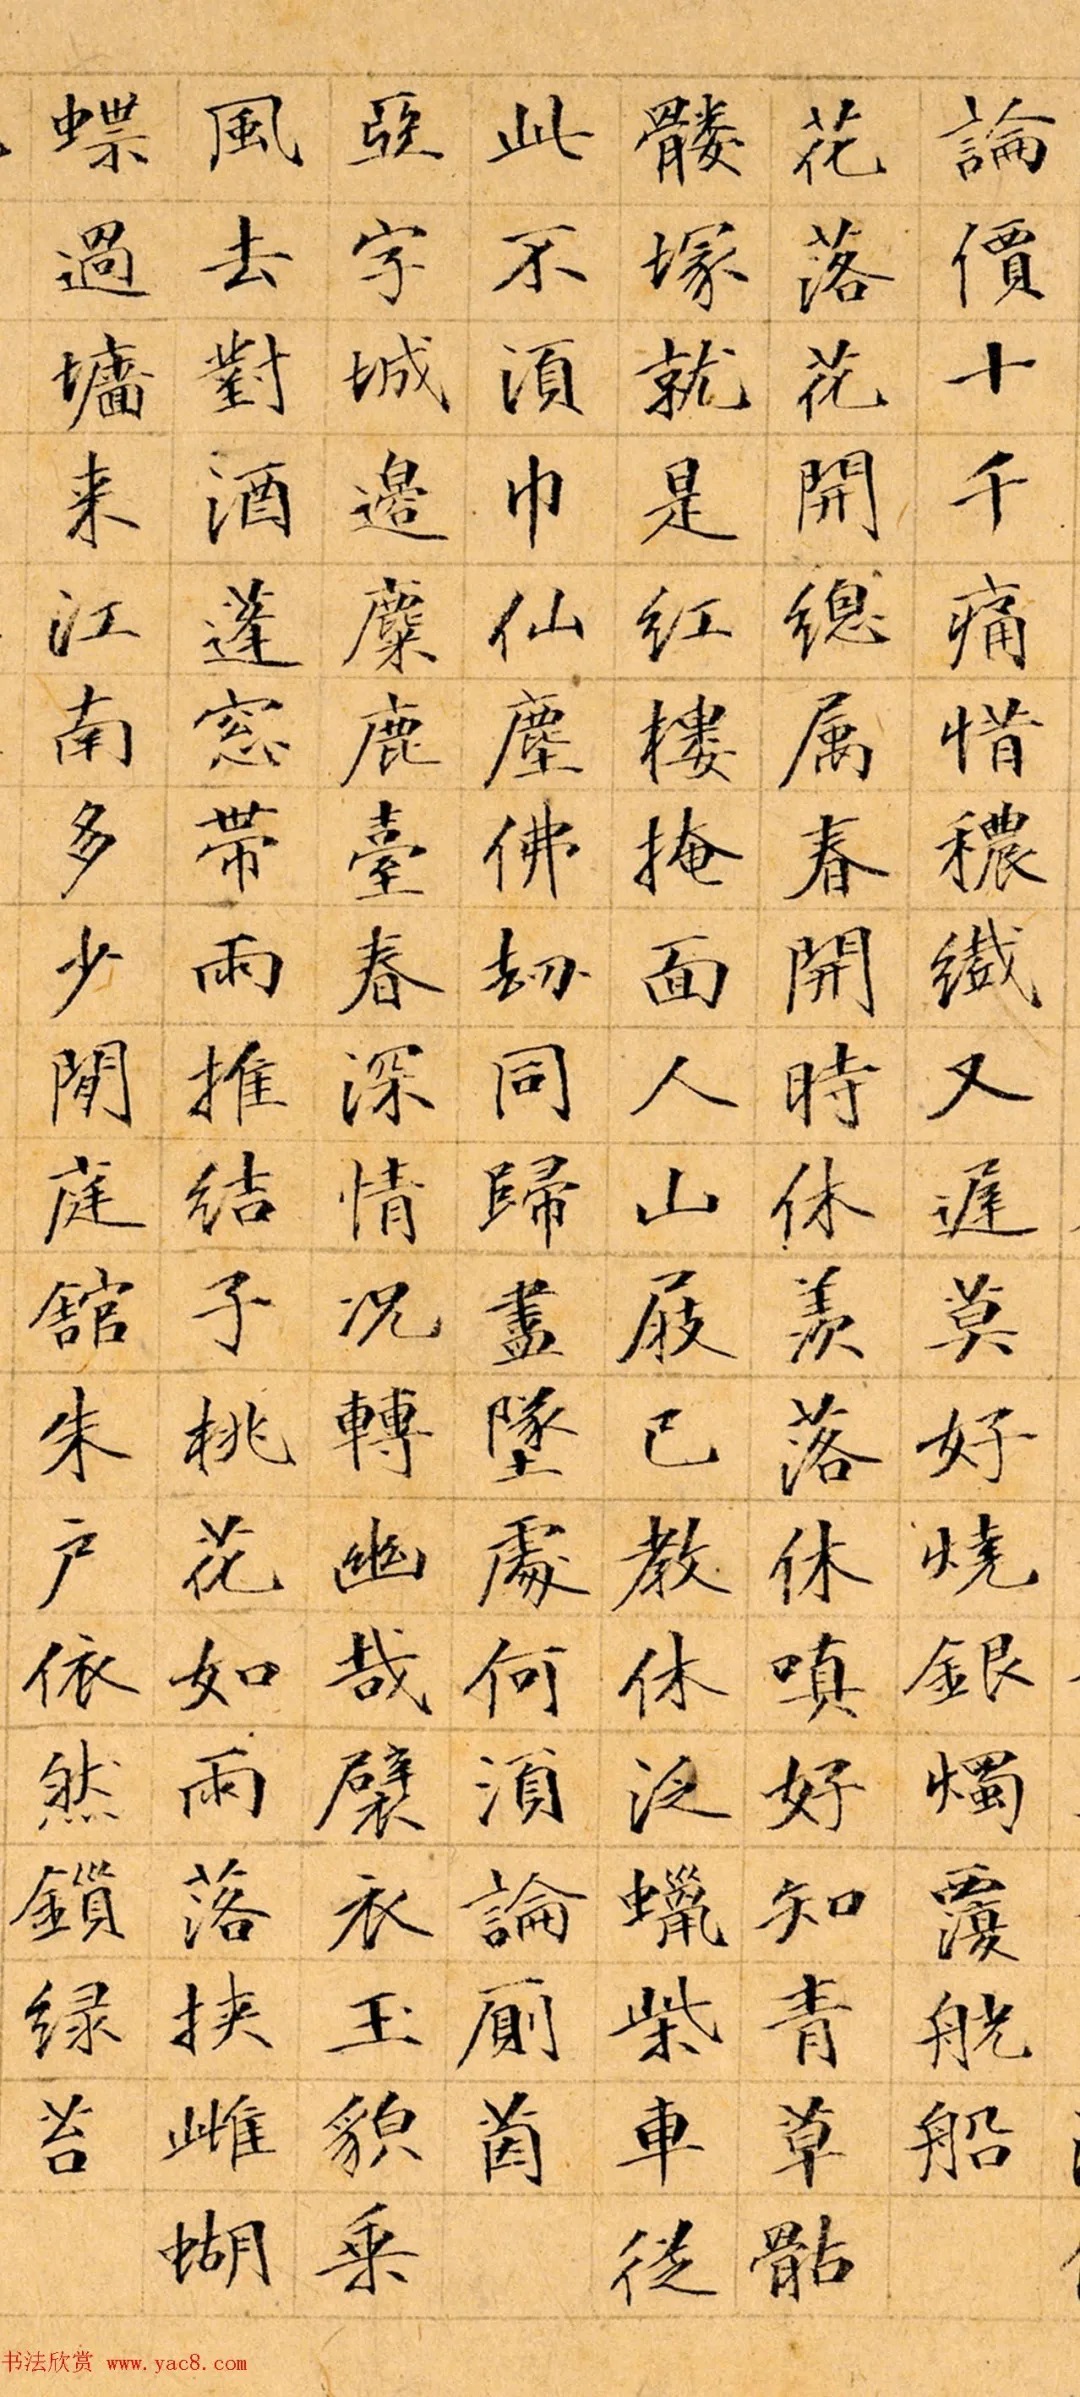 論價十千痛惜穠纖又遲莫好燒銀燭覆觥船
花落花開總属春開時休羨落休嗔好知青草骷
髏塚就是红樓掩面人山屐已教休泛蠟柴車從
此不須巾仙塵佛劫同歸盡墜處何須論厠茵
亞字城邊麋鹿臺春深情况轉幽哉襞衣玉貌乗
風去對酒蓬窓带雨推结子桃花如雨落挟雌蝴
蝶過墻来江南多少閒庭舘朱户依然鎖绿苔
书法欣赏 www.yac8.com